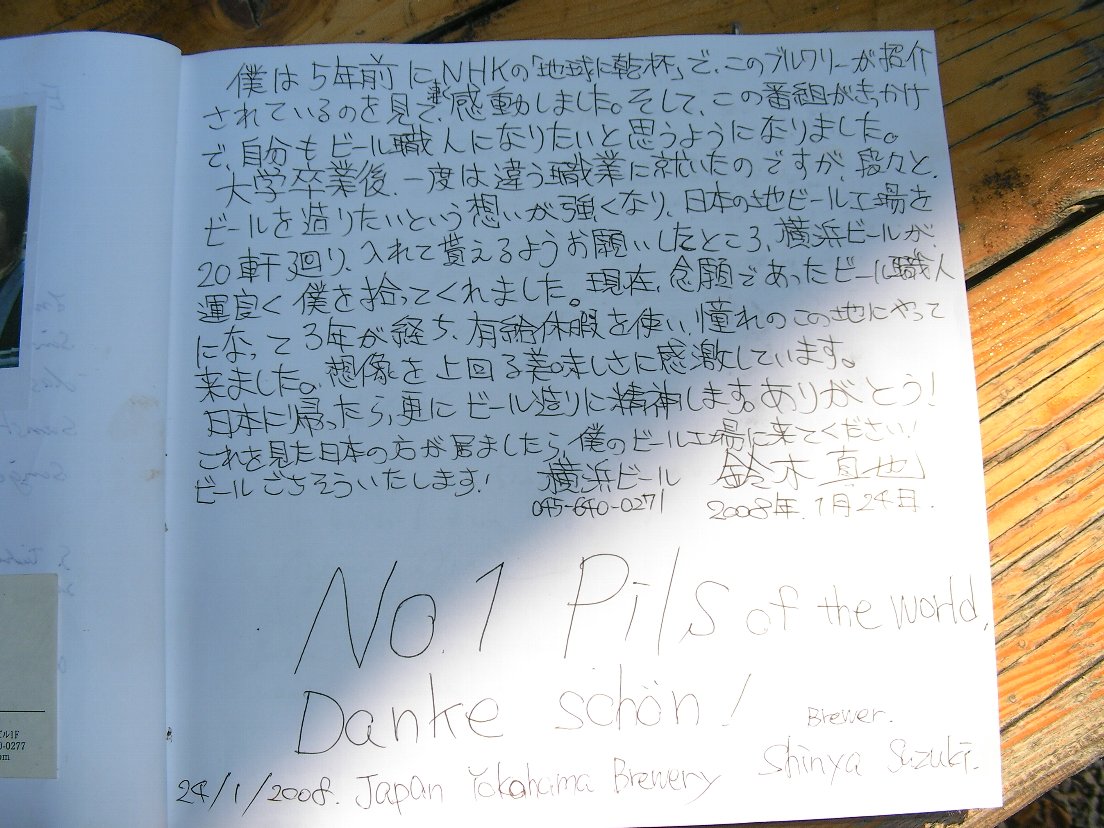 僕は5年前に、NHKの「地球に乾杯」で、このブルワリーが紹介
されているのを見て、感動しました。そして、この番組がきっかけ
で、自分もビール職人になりたいと思うようになりました。
大学卒業後、一度は違う職業に就いたのですが、段々と、
ビールを造りたいという想いが強くなり、日本の地ビール工場を
20軒廻り、入れて貰えるようお願いしたところ、横浜ビールが、
運良く僕を拾ってくれました。現在、念願であったビール職人
になって3年が経ち、有給休暇を使い、憧れのこの地にやって
来ました。想像を上回る美味しさに感激しています。
日本に帰ったら、更にビール造りに精神します。ありがとう!
これを見た日本の方が居ましたら、僕のビール工場に来てください!
ビールごちそういたします! 横浜ビール 鈴木真也
045-640-0271 2008年.1月24日.
No.1 Pils of the world,
Danke schön!
Brewer.
24/1/2008. Japan Yokohama Brewery Shinya Suzuki.
ビル1F
0-0277
om